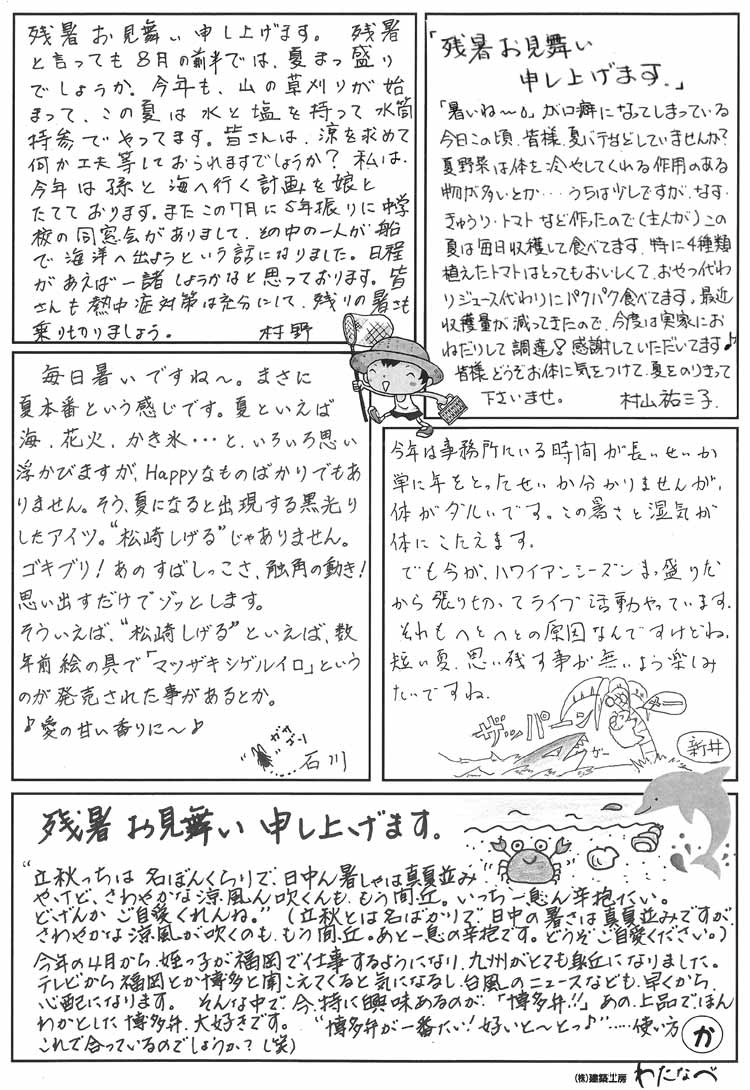 残暑お見舞い申し上げます。 残暑
と言っても8月の前半では、夏まっ盛り
でしょうか。今年も、山の草刈りが始
まって、この夏は水と塩を持って水筒
持参でやってます。皆さんは、涼を求めて
何か工夫等しておられますでしょうか?私は、
今年は孫と海へ行く計画を娘と
たてております。またこの7月に5年振りに中学
校の同窓会がありまして、その中の一人が船
で海洋へ出ようという話になりました。日程
があえば一諸しようかなと思っております。皆
さんも熱中症対策は充分にして、残りの暑さも
乗りきりましょう。 村野
「残暑お見舞い
申し上げます。」
「暑いね〜。」が口癖になってしまっている
今日この頃、皆様、夏バテなどしていませんか?
夏野菜は体を冷やしてくれる作用のある
物が多いとか・・・うちは少しですが、なす・
きゅうり・トマトなど作ったので(主人が)この
夏は毎日収穫して食べてます。特に4種類
植えたトマトはとってもおいしくて、おやつ代わ
りジュース代わりにパクパク食べてます。最近
収穫量が減ってきたので、今度は実家にお
ねだりして調達!感謝していただいてます♪
皆様どうぞお体に気をつけて、夏をのりきって
下さいませ。 村山祐三子
毎日暑いですね〜。まさに
夏本番という感じです。夏といえば
海、花火、かき氷・・・と、いろいろ思い
浮かびますが、Happyなものばかりでもあ
りません。そう、夏になると出現する黒光り
したアイツ。"松崎しげる"じゃありません。
ゴキブリ!あのすばしっこさ、触角の動き!
思い出すだけでゾッとします。
そういえば、"松崎しげる"といえば、数
年前絵の具で「マツザキシゲルイロ」という
のが発売された事があるとか。
♪愛の甘い香りに〜♪
石川
今年は事務所にいる時間が長いせいか
単に年をとったせいか分かりませんが、
体がダルいです。この暑さと湿気が
体にこたえます。
でも今が、ハワイアンシーズンまっ盛りだ
から張りきってライブ活動やっています。
それもへとへとの原因なんですけどね。
短い夏、思い残す事が無いよう楽しみ
たいですね。
ザッパーン
ガー
新井
残暑お見舞い申し上げます。
"立秋っちは名ばんくらりで、日中ん暑しゃは真夏並み
やけど、さわやかな涼風ん吹くんも、もう間近。いっち一息ん辛抱たい。
どげんかご自愛くれんね。"(立秋とは名ばかりで、日中の暑さは真夏並みですが、
さわやかな涼風が吹くのも、もう間近。あと一息の辛抱です。どうぞご自愛ください。)
今年の4月から、姪っ子が福岡で仕事するようになり、九州がとても身近になりました。
テレビから福岡とか博多と聞こえてくると気になるし、台風のニュースなども、早くから
心配になります。 そんな中で、今、特に興味あるのが、「博多弁!!」あの、上品でほん
わかとした博多弁、大好きです。 "博多弁が一番たい!好いと〜とっ♪"……使い方
これで合っているのでしょうか?(笑) か
(株)建築工房 わたなべ